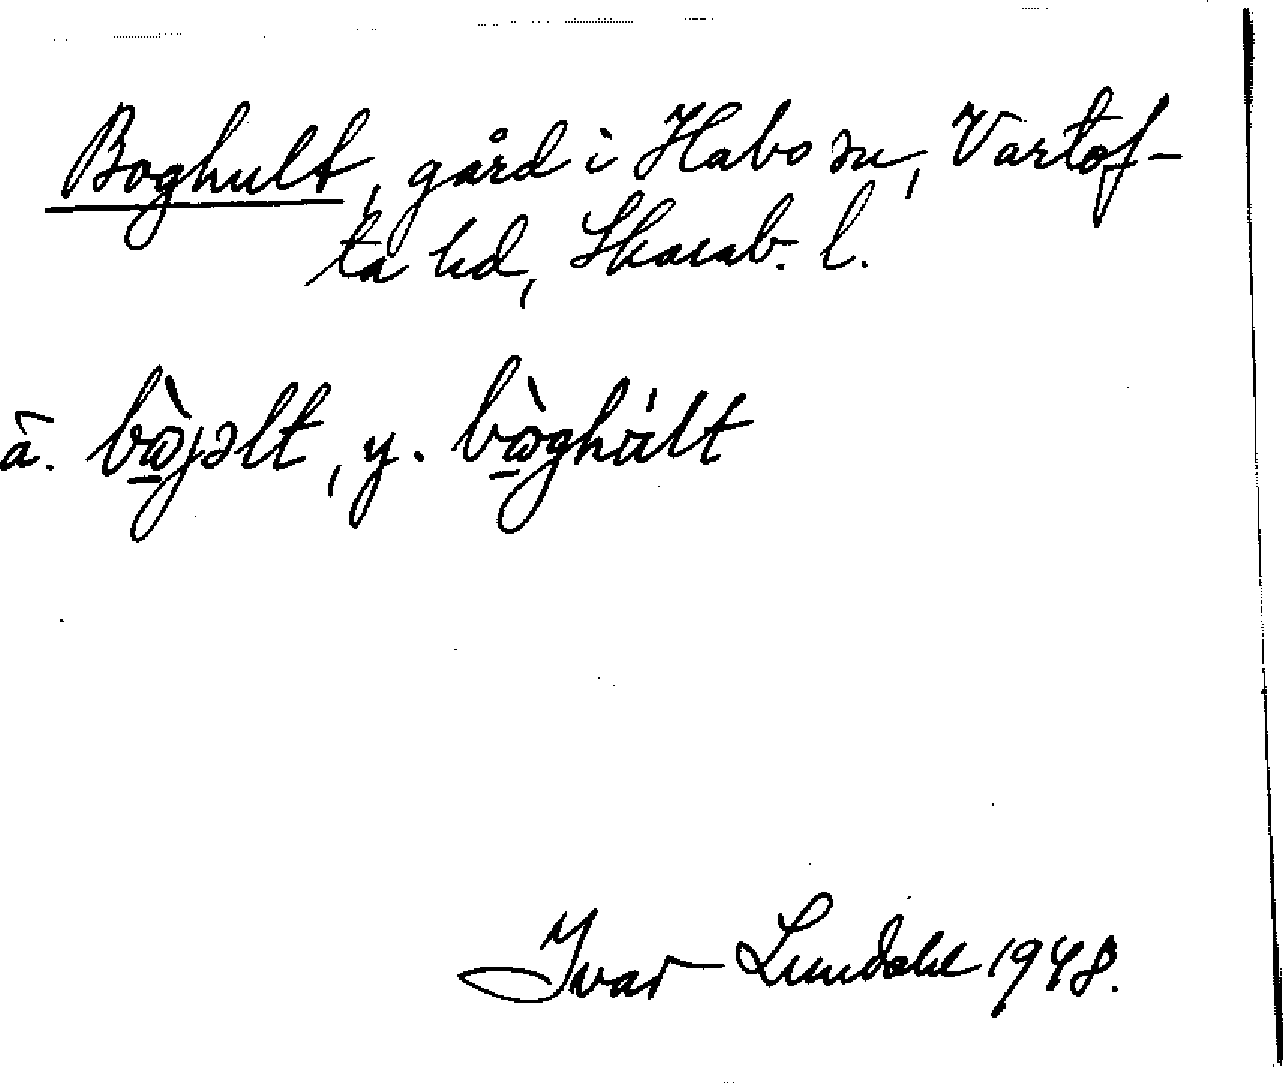 Boghult, gård i Habo sn, Vartof-
ta hd, Skarab. l.
ä. bὼ̲jəlt, y. bὼ̲ghúlt
Ivar Lundahl 1948.